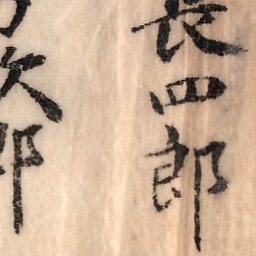 長四郎
次郎